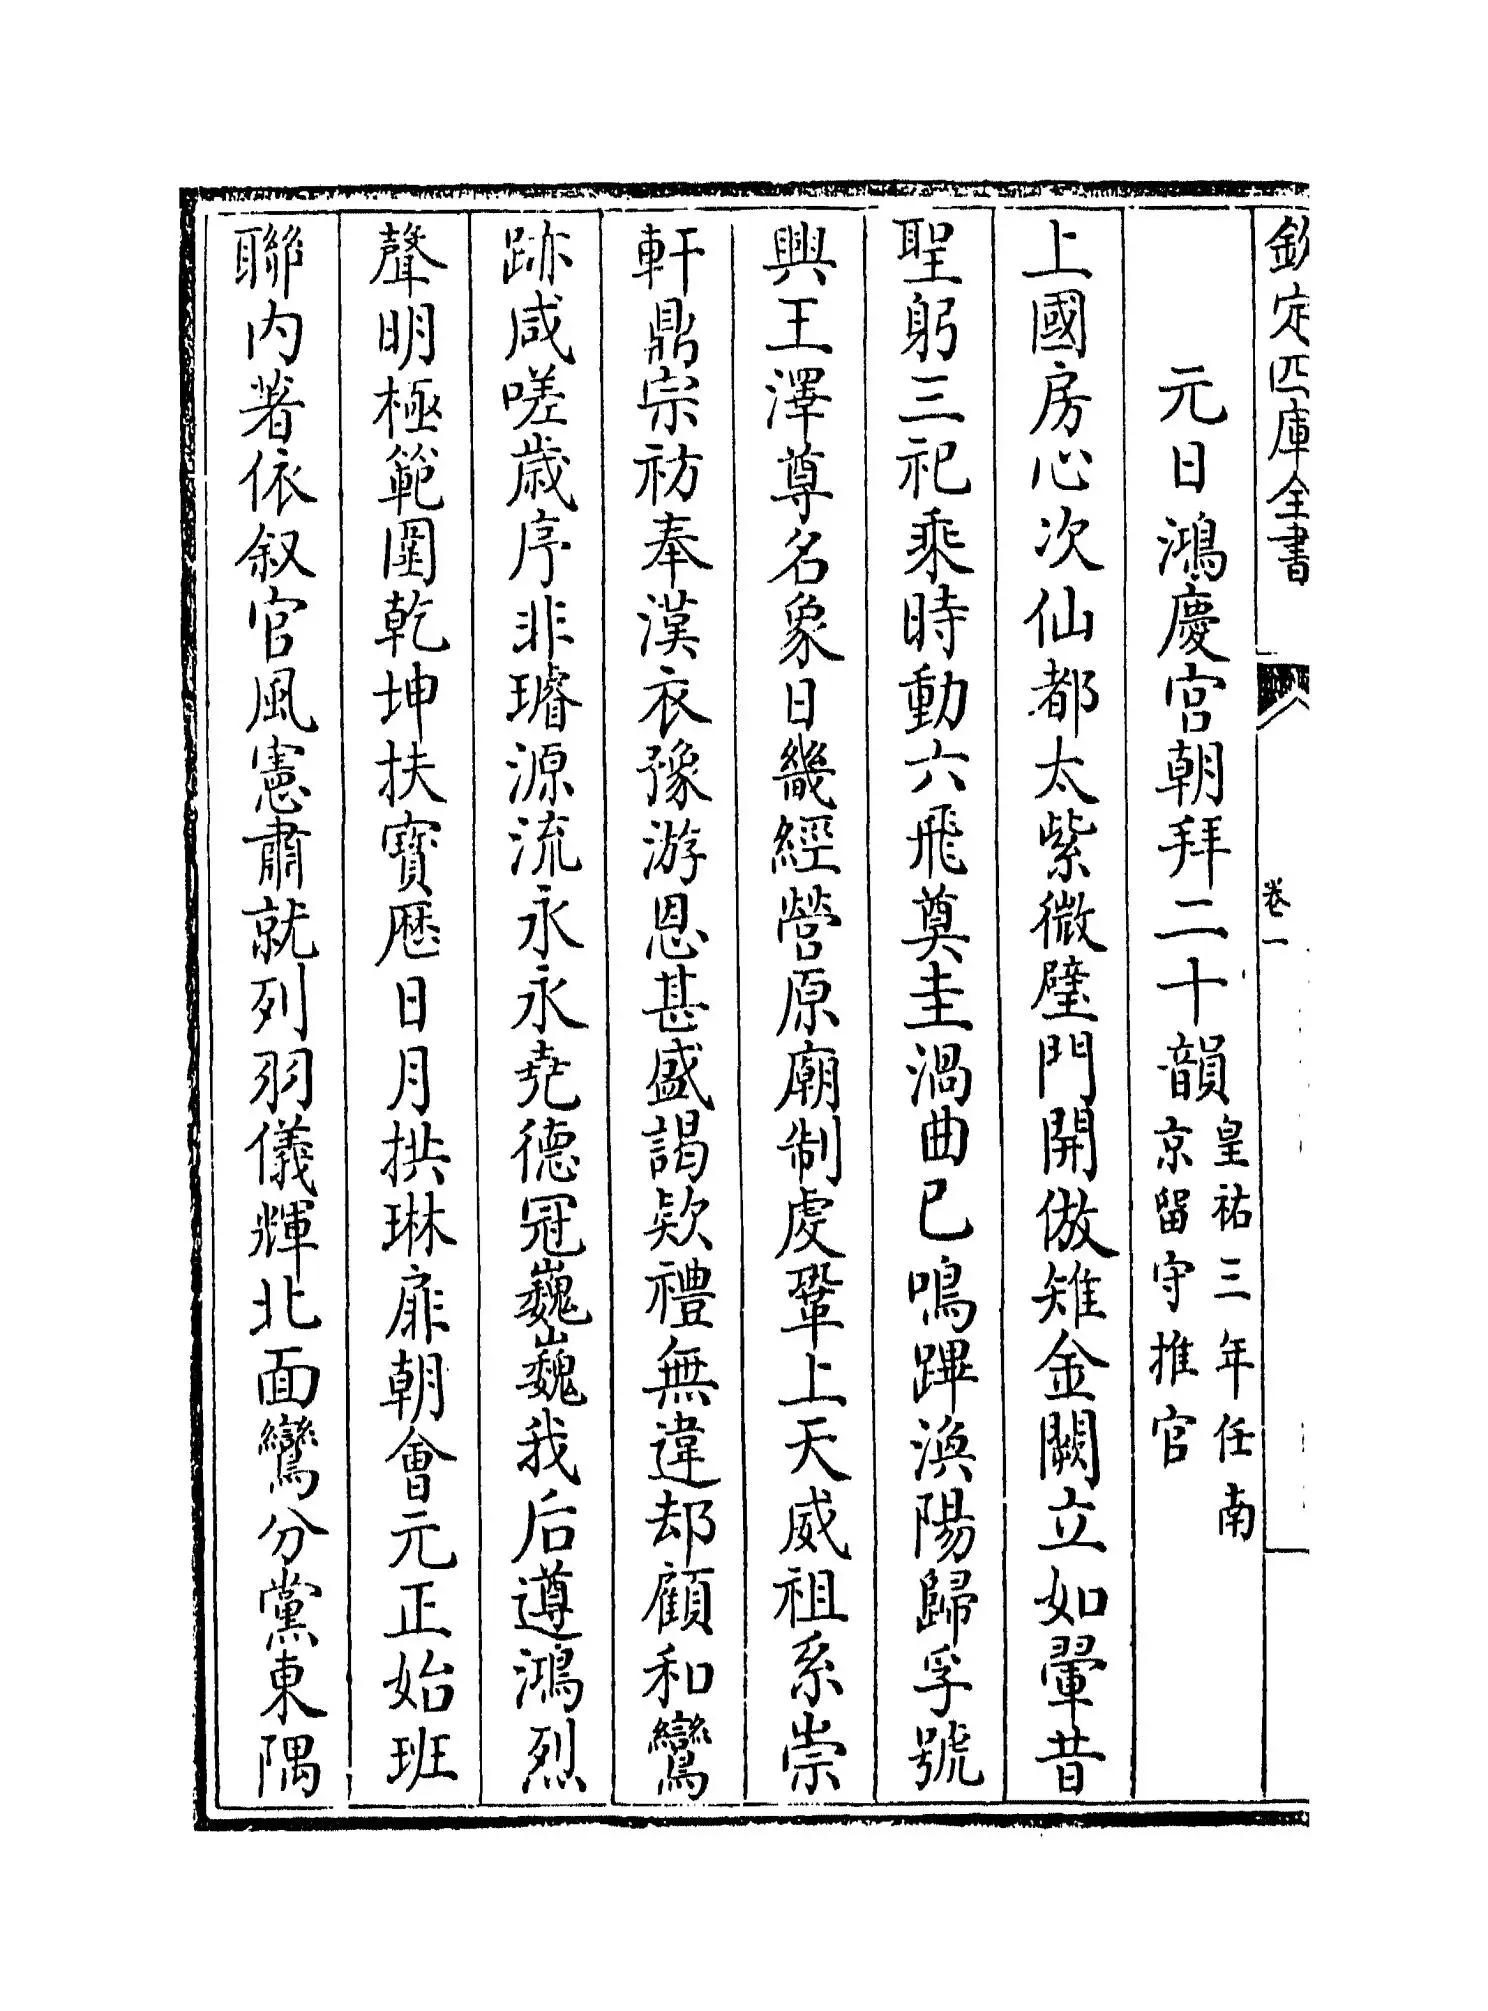 欽定四庫全書
卷一
元日鴻慶宮朝拜二十韻皇祐三年任南京留守推官
上國房心次仙都太紫微璧門開倣雉金闕立如翬昔
聖躬三祀乘時動六飛奠圭渦曲已鳴蹕渙陽歸孚號
興王澤尊名象日畿經營原廟制虔鞏上天威祖系崇
軒鼎宗祊奉漢衣豫游恩甚盛謁欵禮無違却顧和鸞
跡咸嗟歲序非璿源流永永堯德冠巍巍我后遵鴻烈
聲明極範圍乾坤扶寶厯日月拱琳扉朝會元正始班
聯内著依叙官風憲肅就列羽儀輝北面鸞分黨東隅